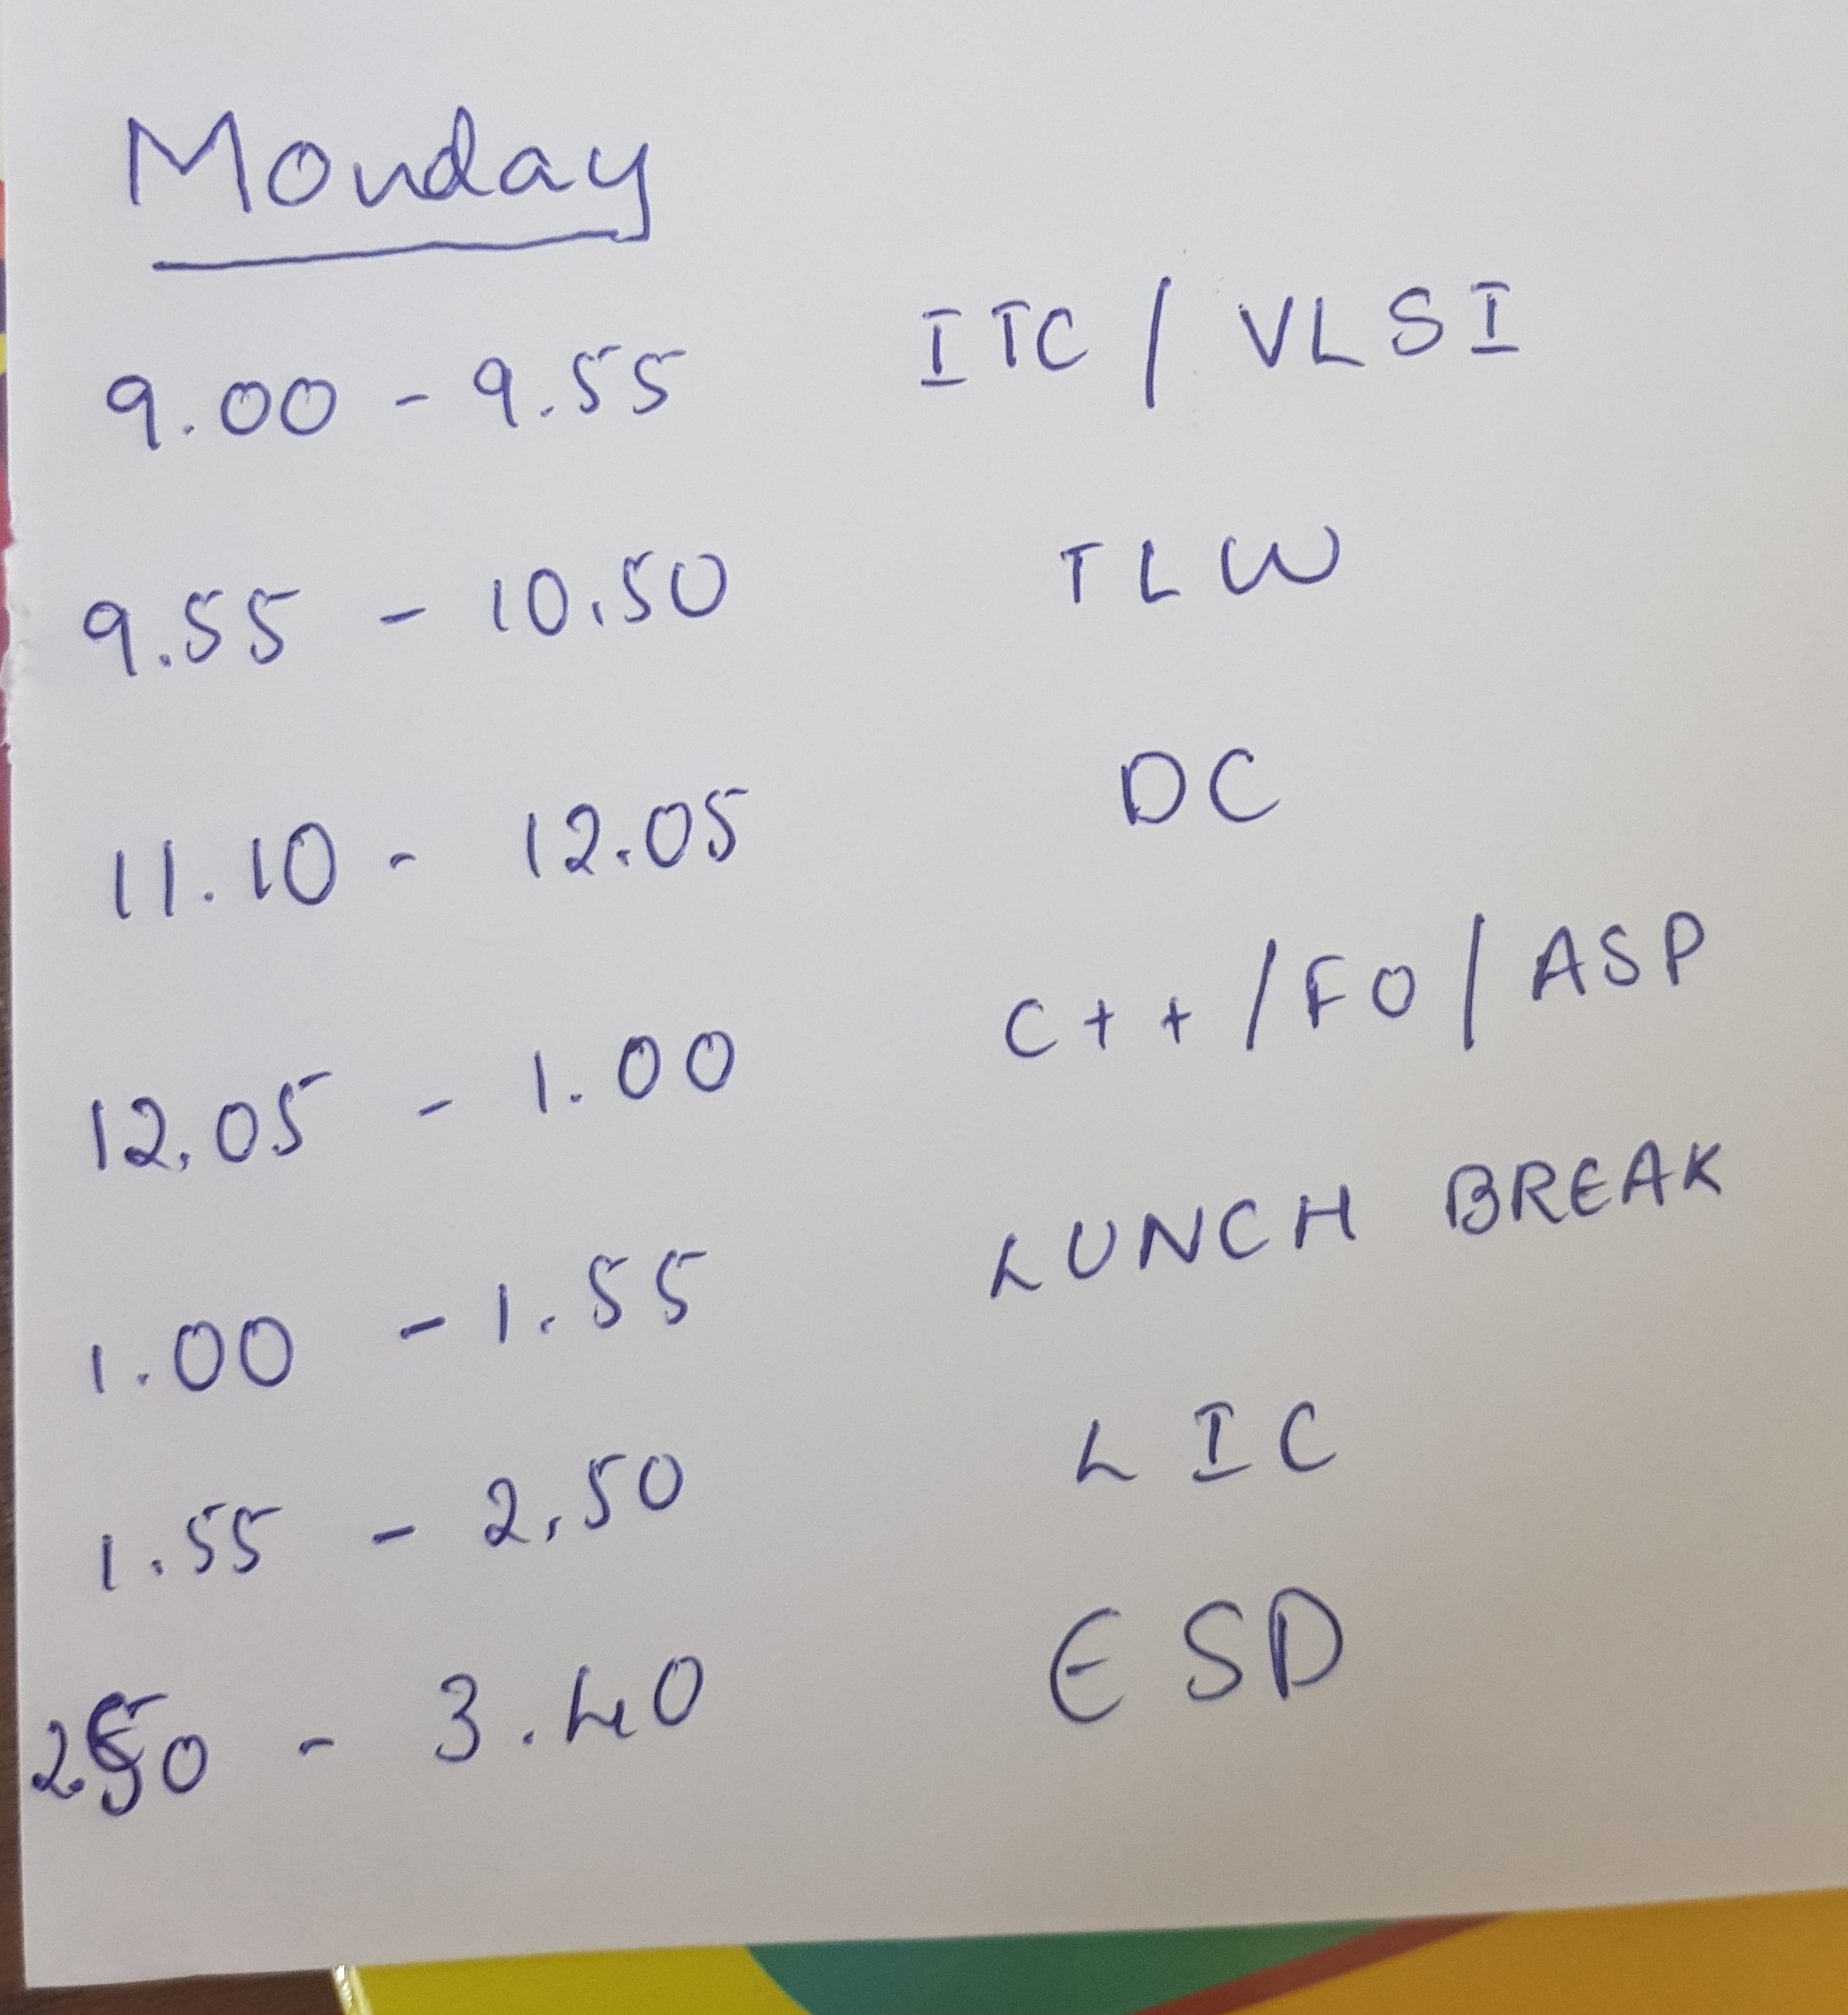 Monday
9.00 - 9.55 ITC / VLSI
9.55 - 10.50 TLW
11.10 - 12.05 DC
12.05 - 1.00 C++ / FO / ASP
1.00 - 1.55 LUNCH BREAK
1.55 - 2.50 LIC
2.50 - 3.40 ESD